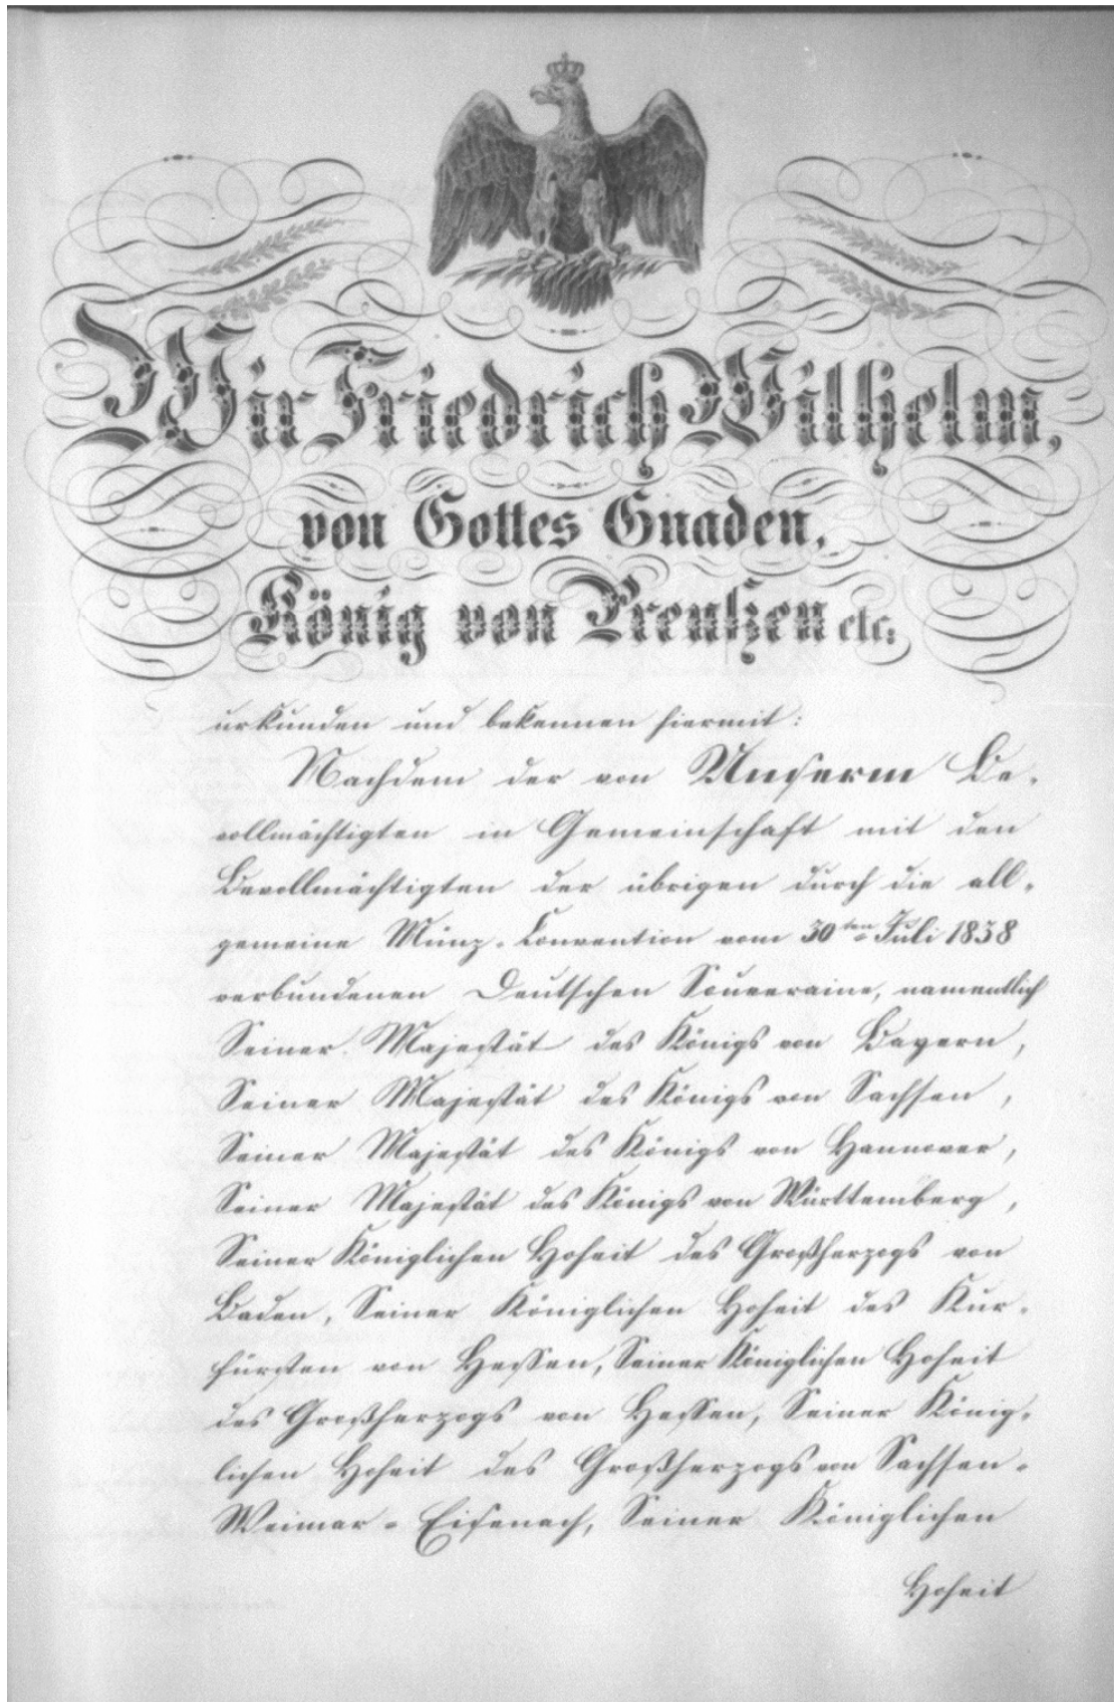 Wir Friedrich Wilhelm,
von Gottes Gnaden,
König von Preußen etc:
urkunden und bekennen hiermit:
Nachdem der von Unserm Be-
vollmächtigten in Gemeinschaft mit den
Bevollmächtigten der übrigen durch die all-
gemeine Münz-Convention vom 30ten Juli 1838
verbundenen Deutschen Souveraine, namentlich
Seiner Majestät des Königs von Bayern,
Seiner Majestät des Königs von Sachsen,
Seiner Majestät des Königs von Hannover,
Seiner Majestät des Königs von Württemberg,
Seiner Königlichen Hoheit des Großherzogs von
Baden, Seiner Königlichen Hoheit des Kur-
fürsten von Hessen, Seiner Königlichen Hoheit
des Großherzogs von Hessen, Seiner König-
lichen Hoheit des Großherzogs von Sachsen-
Weimar-Eisenach, Seiner Königlichen
Hoheit